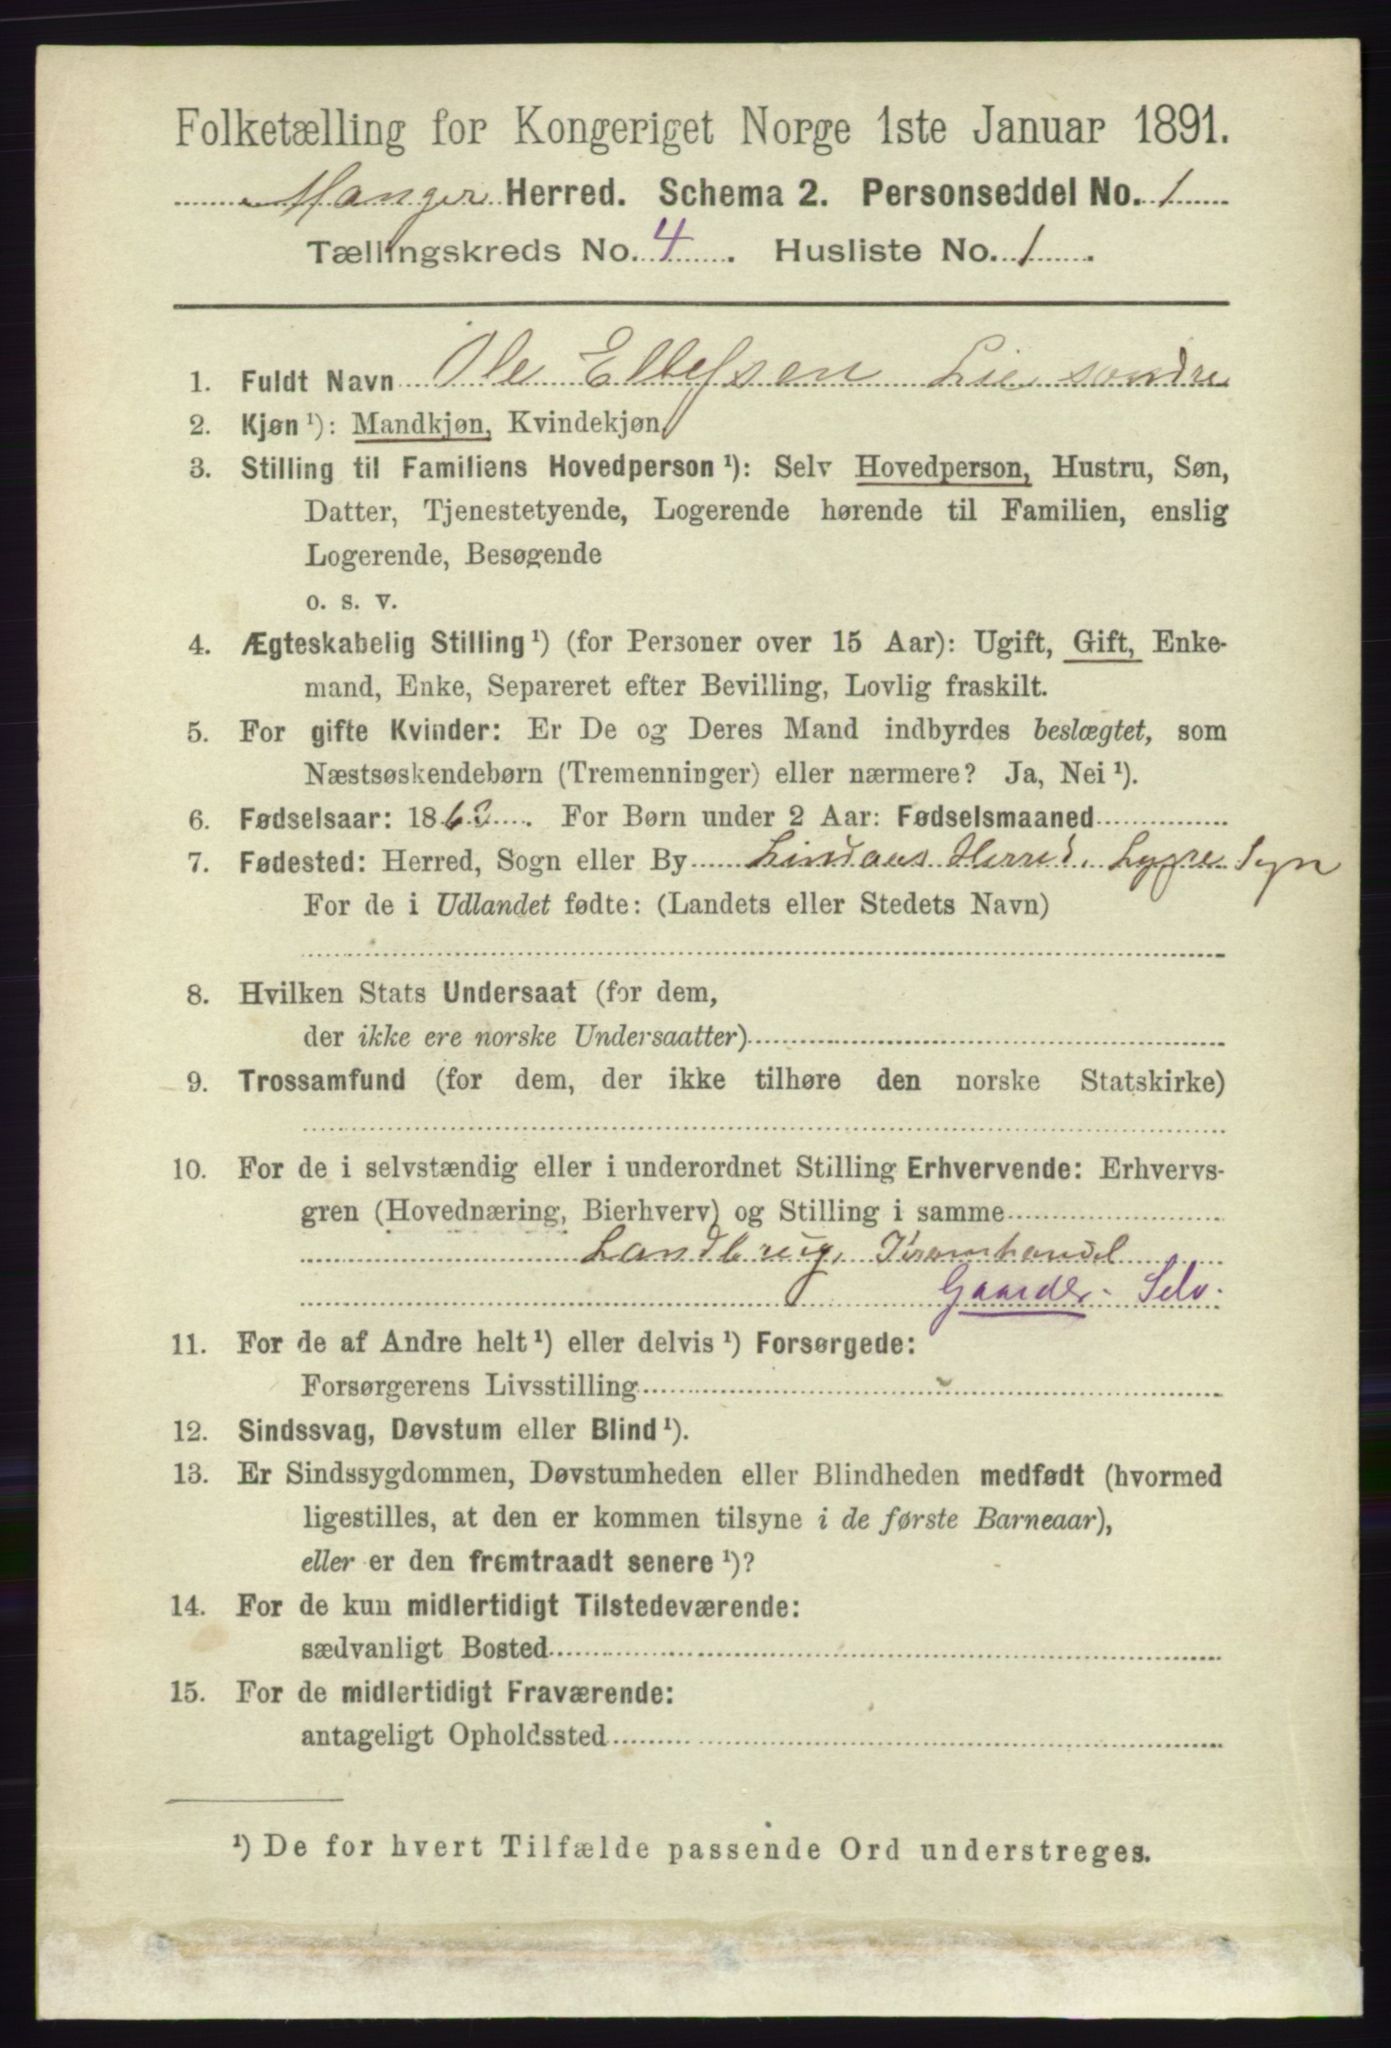 Folketælling for Kongeriget Norge 1ste Januar 1891.
Manger Herred. Schema 2. Personseddel No. 1
Tællingskreds No. 4. Husliste No. 1.
1. Fuldt Navn Ole Ellefsen Lie søndre
2. Kjøn ¹): Mandkjøn, Kvindekjøn
3. Stilling til Familiens Hovedperson ¹): Selv Hovedperson, Hustru, Søn,
Datter, Tjenestetyende, Logerende hørende til Familien, enslig
Logerende, Besøgende
o. s. v.
4. Ægteskabelig Stilling ¹) (for Personer over 15 Aar): Ugift, Gift, Enke-
mand, Enke, Separeret efter Bevilling, Lovlig fraskilt.
5. For gifte Kvinder: Er De og Deres Mand indbyrdes beslægtet, som
Næstsøskendebørn (Tremenninger) eller nærmere? Ja, Nei ¹).
6. Fødselsaar: 186. For Børn under 2 Aar: Fødselsmaaned
7. Fødested: Herred, Sogn eller By Lindaas Herred, Lygre Sgn
For de i Udlandet fødte: (Landets eller Stedets Navn)
8. Hvilken Stats Undersaat (for dem,
der ikke ere norske Undersaatter)
9. Trossamfund (for dem, der ikke tilhøre den norske Statskirke)
10. For de i selvstændig eller i underordnet Stilling Erhvervende: Erhvervs-
gren (Hovednæring, Bierhverv) og Stilling i samme
Landbrug, Kramhandel
Gaardbr. Selv.
11. For de af Andre helt ¹) eller delvis ¹) Forsørgede:
Forsørgerens Livsstilling
12. Sindssvag, Døvstum eller Blind ¹).
13. Er Sindssygdommen, Døvstumheden eller Blindheden medfødt (hvormed
ligestilles, at den er kommen tilsyne i de første Barneaar),
eller er den fremtraadt senere ¹)?
14. For de kun midlertidigt Tilstedeværende:
sædvanligt Bosted
15. For de midlertidigt Fraværende:
antageligt Opholdssted
¹) De for hvert Tilfælde passende Ord understreges.